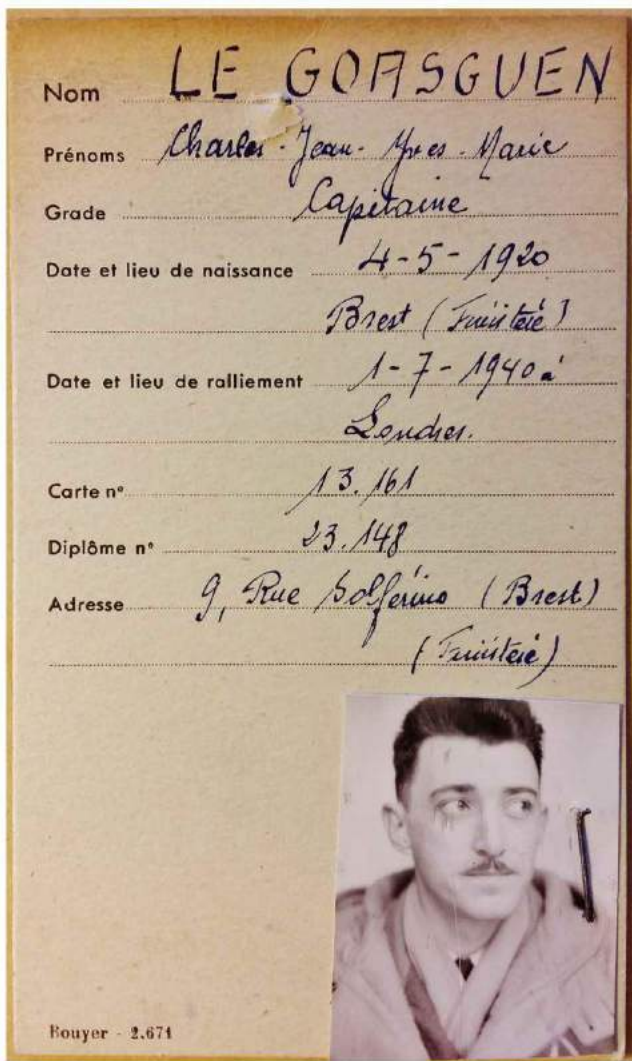 Nom LE GOASGUEN
Prénoms Charles-Jean-Yves-Marie
Grade Capitaine
Date et lieu de naissance 4-5-1920
Brest (Finistère)
Date et lieu de ralliement 1-7-1940 à
Londres.
Carte nº 13.161
Diplôme nº 23.148
Adresse 9, Rue Solférino (Brest)
(Finistère)
Rouyer - 2.671